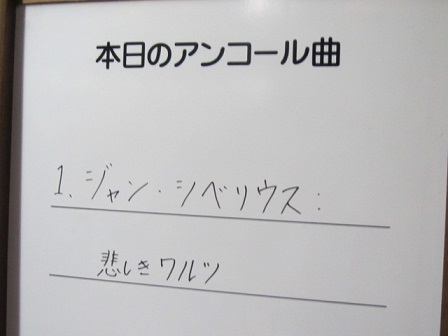 本日のアンコール曲
1. ジャン・シベリウス:
悲しきワルツ